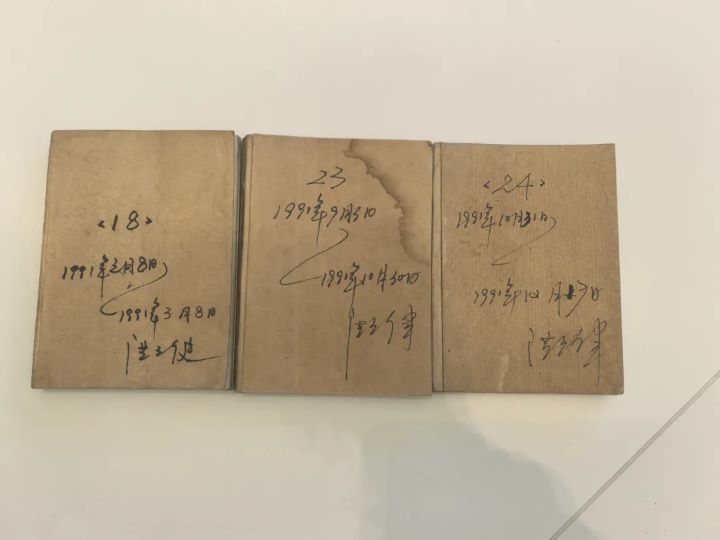 <18>
1991年2月8日
1991年3月8日
23
1991年9月3日
1991年10月30日
<24>
1991年10月31日
1991年12月13日